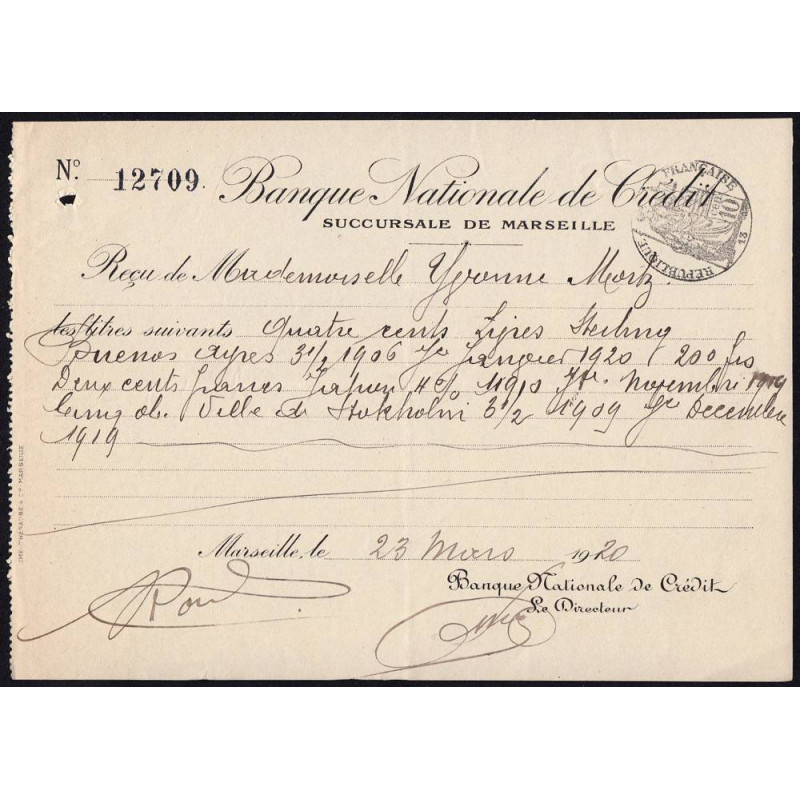 Nº 12709. Banque Nationale de Crédit
SUCCURSALE DE MARSEILLE
RÉPUBLIQUE FRANÇAISE 10
Reçu de Mademoiselle Yvonne
les titres suivants Quatre cents Sterling
Buenos Ayres 3 1/2 1906 Jce Janvier 1920 200 frs
Deux cents francs Japon 4% 1910 Jce Novembre 1919
Cinq ob. Ville de Stokholm 3 1/2 1909 Jce Decembre
1919
Marseille, le 23 Mars 1920
Banque Nationale de Crédit
Le Directeur